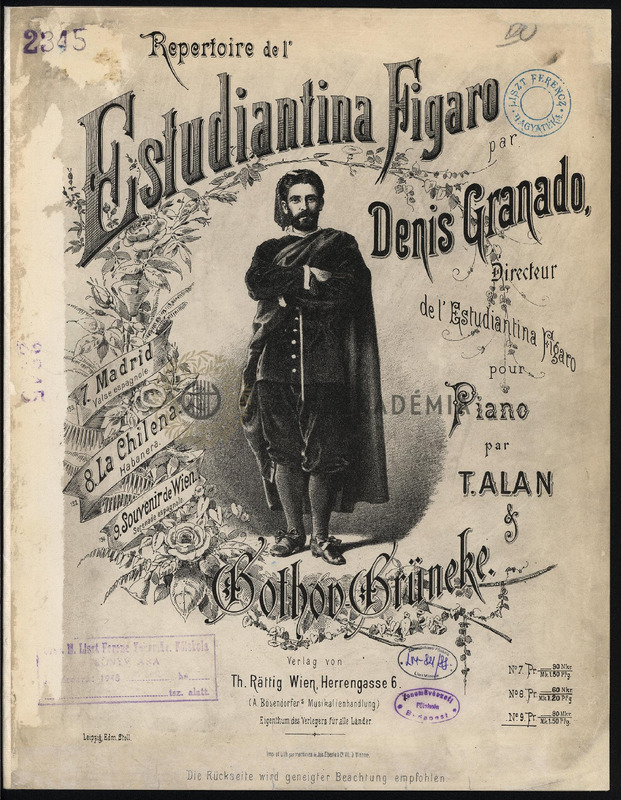 2345
Repertoire de l'
Estudiantina Figaro
par
Denis Granado,
Directeur
de l'Estudiantina Figaro
pour
Piano
par
T. ALAN
&
Gothov-Grüneke.
7. Madrid
Valse espagnole
8. La Chilena.
Habanera.
9. Souvenir de Wien.
Serenade espagnole
LISZT FERENC
HAGYATÉKA
Verlag von
Th. Rättig Wien, Herrengasse 6.
(A. Bösendorfer's Musikalienhandlung)
Eigenthum des Verlegers für alle Länder.
Nº 7 Pr. 90 Nkr
Mk 1.50 Pfg.
Nº 8 Pr. 60 Nkr
Mk 1.20 Pfg
Nº 9 Pr. 80 Nkr
Mk 1.50 Pfg.
M. Liszt Ferenc Zeneműv. Főiskola
KÖNYVTÁRA
lsz. alatt
Zeneművészeti
Főiskola
Budapest
Leipzig, Edm. Stoll.
Die Rückseite wird geneigter Beachtung empfohlen